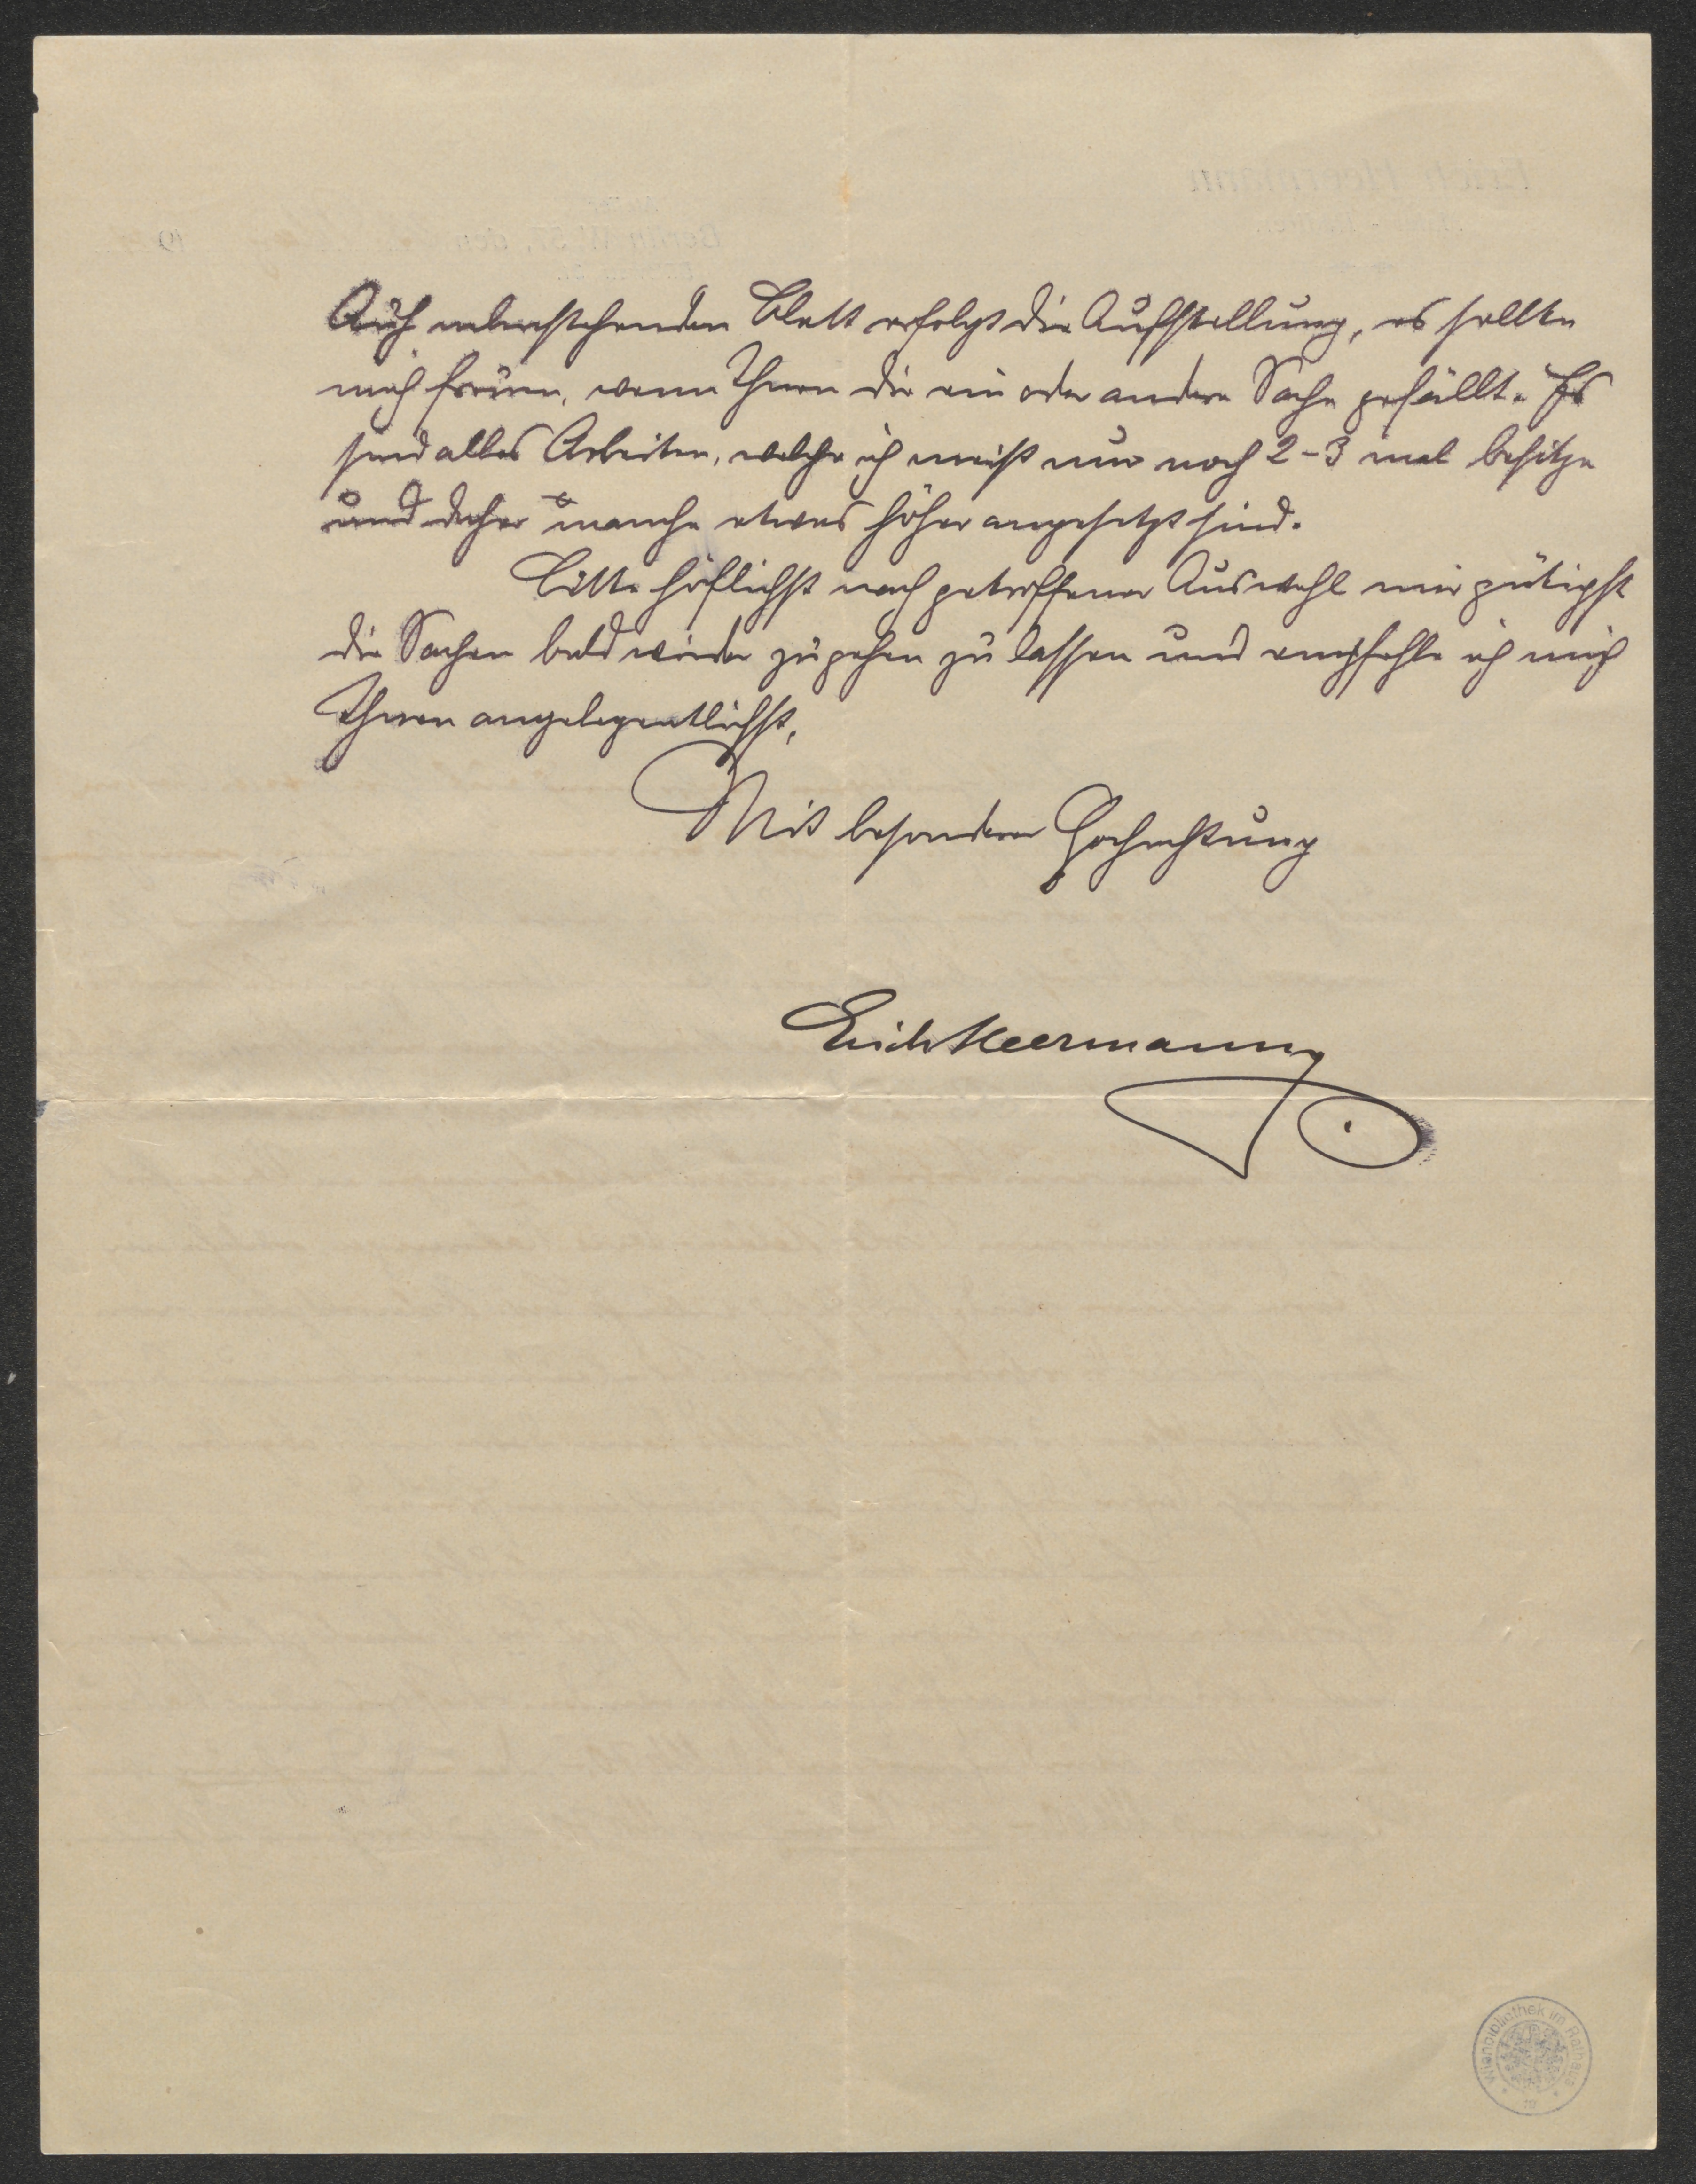 Auf nebenstehenden Blatt erfolgt die Aufstellung, es sollte
mich freuen, wenn Ihnen die ein oder andere Sache gefällt. Es
sind alles Arbeiten, welche ich meist nur noch 2-3 mal besitze
und daher manche etwas höher angesetzt sind.
Bitte höflichst nach getroffener Auswahl mir gütigst
die Sachen bald wieder zugehen zu lassen und empfehle ich mich
Ihnen angelegentlichst,
Mit besonderer Hochachtung
Erich Heermann
Wienbibliothek im Rathaus